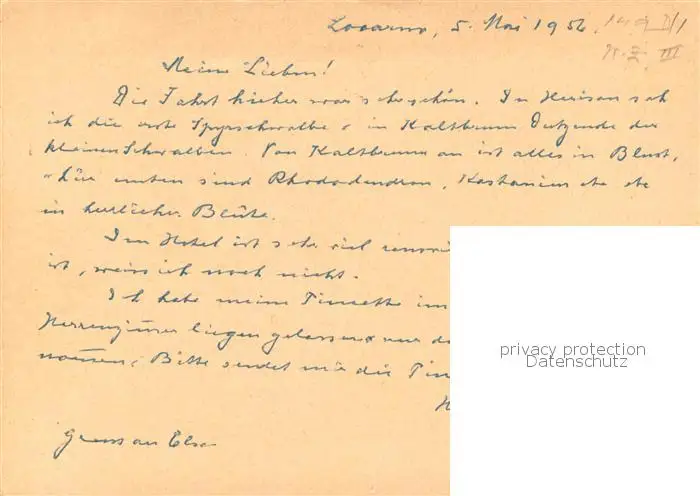 Locarno, 5. Mai 1956
Meine Lieben!
Die Fahrt hieher war sehr schön. In Herisau sah
ich die erste Spyrschwalbe & in Kaltbrunn Dutzende der
kleinen Schwalben. Von Kaltbrunn an ist alles in Blust,
hier unten sind Rhododendron, Kastanien etc etc
in herrlicher Blüte.
Im Hotel ist sehr viel
ist, weiss ich noch nicht.
Ich habe meine Pincette im
Herrenzimmer liegen gelassen
Bitte sendet mir die Pin
Gruss an Elsa
privacy protection
Datenschutz